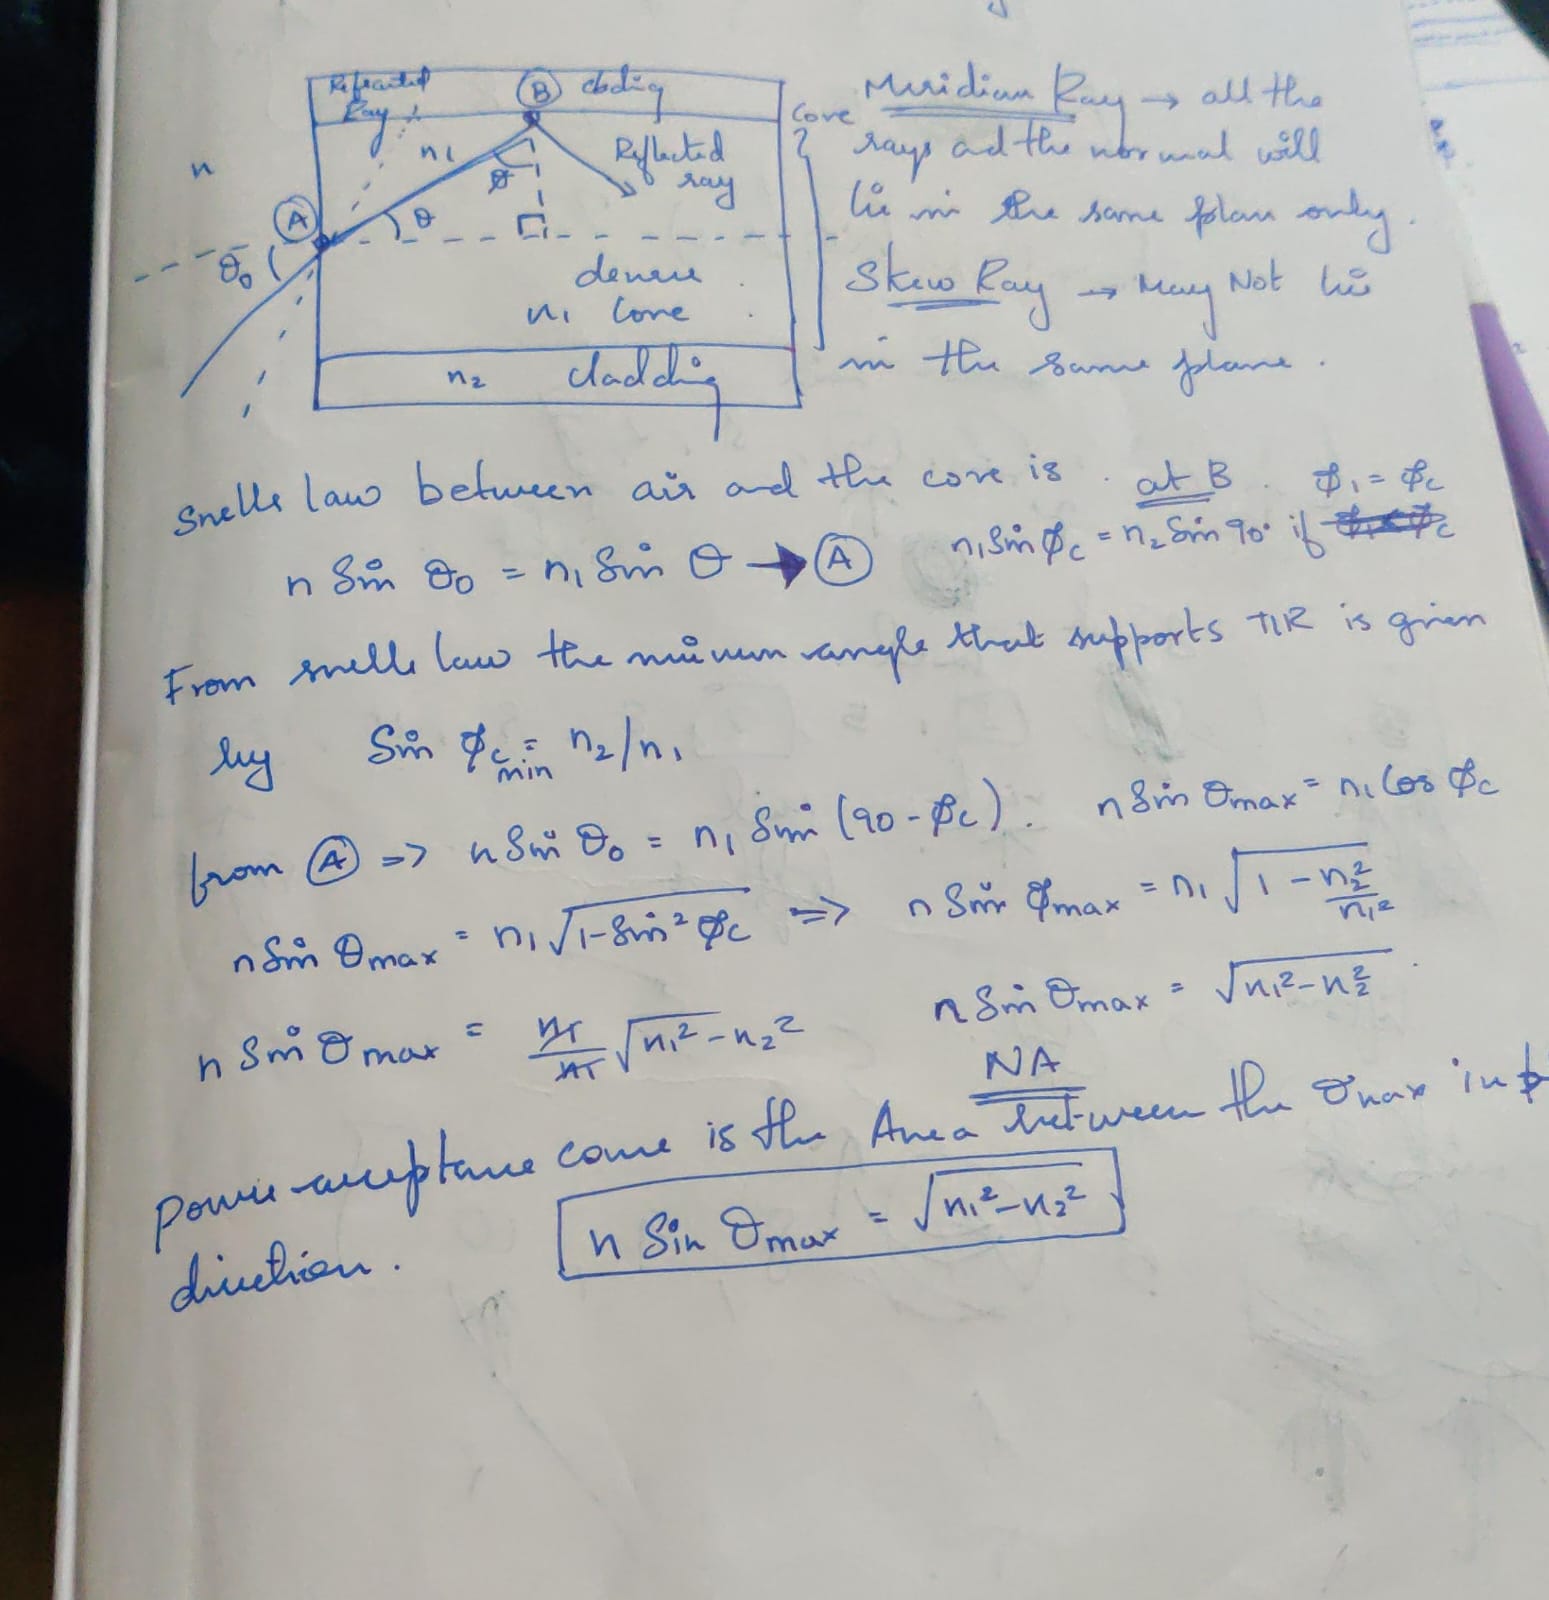 Refracted
Ray
B
cladding
n
n1
ϕ
Reflected
ray
Core
A
θ
θ0
denser
n1 Core
n2 cladding
Meridian Ray → all the
rays ad the normal will
lie in the same plan only.
Skew Ray → May Not lie
in the same plane.
Snells law between air and the core is . at B . ϕ1 = ϕc
n Sin θ0 = n1 Sin θ → A
n1 Sin ϕc = n2 Sin 90° if
From snells law the minimum angle that supports TIR is given
by Sin ϕc min = n2/n1
from A => n Sin θ0 = n1 Sin (90 - ϕc). n Sin θmax = n1 Cos ϕc
n Sin θmax = n1 √1-Sin² ϕc => n Sin ϕmax = n1 √1 - n2²/n1²
n Sin θmax = n1/n1 √n1² - n2² n Sin θmax = √n1² - n2²
NA
Power acceptance cone is the Area between the θmax in
direction.
n Sin θmax = √n1² - n2²